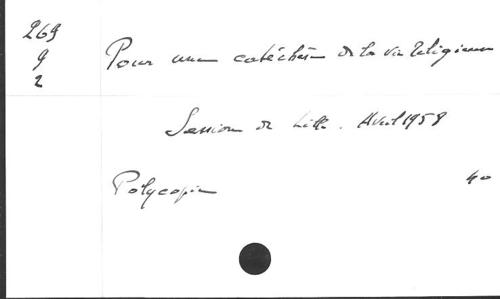 269
9
2
Pour une catéchèse de la vie religieuse
Session de Lille. Avril 1958
Polycopie
40